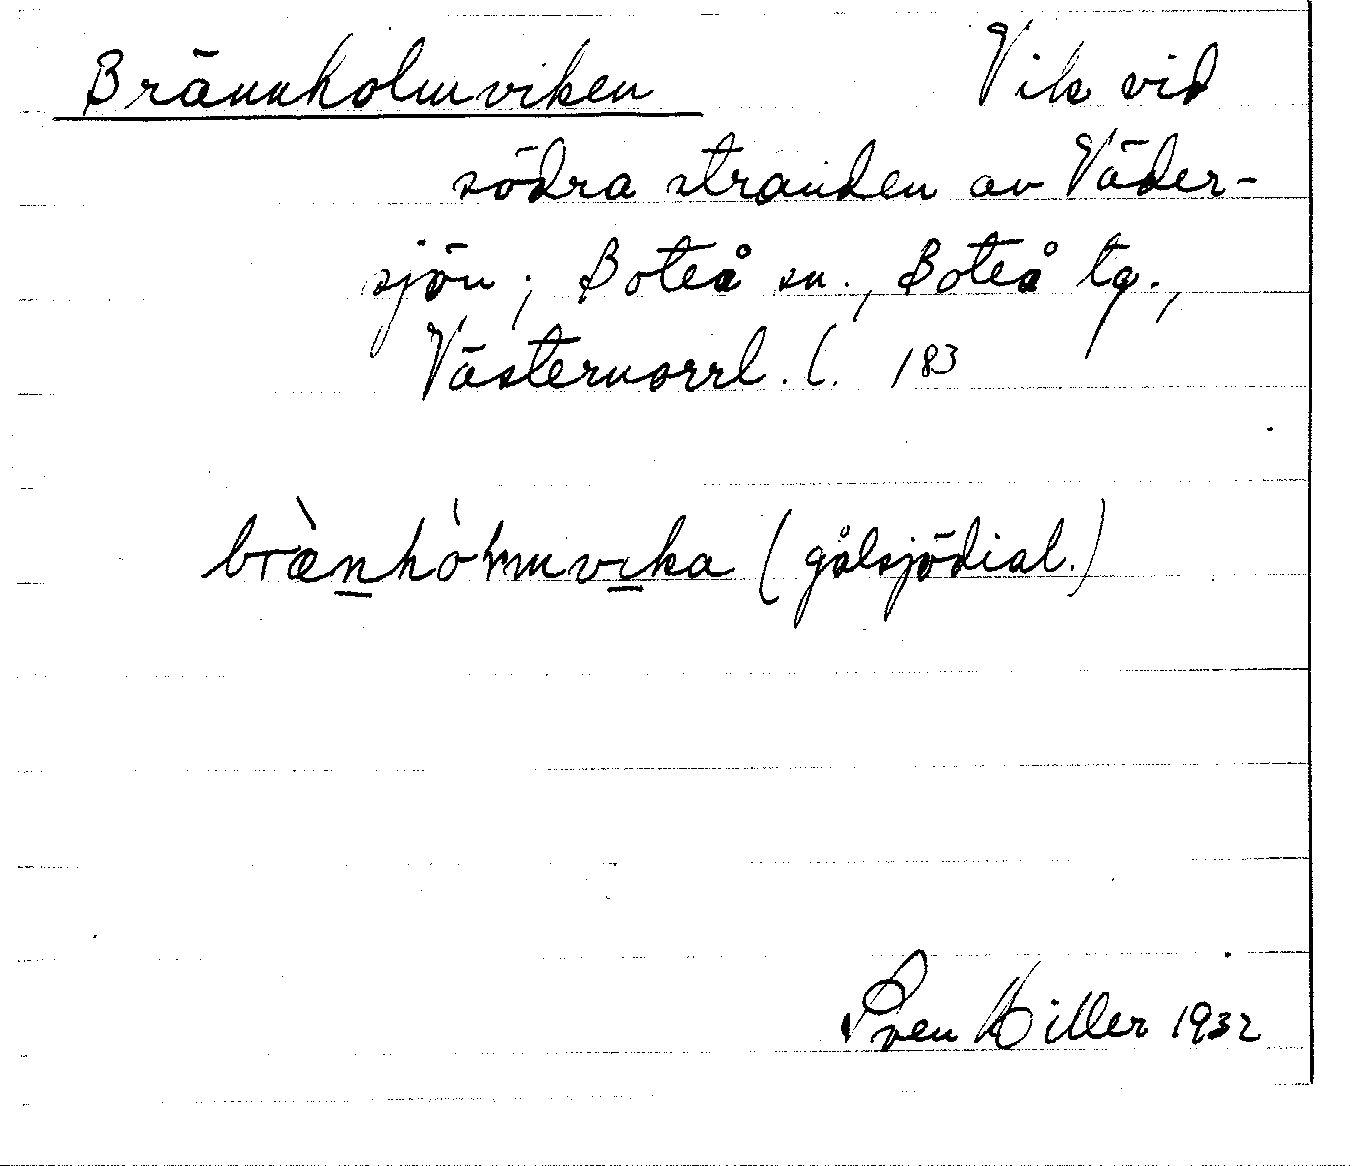 Brännholmviken Vik vid
södra stranden av Väder-
sjön; Boteå sn., Boteå tg.,
Västernorrl. l. 183
brænhòlmvika (gålsjödial.)
Sven Hiller 1932